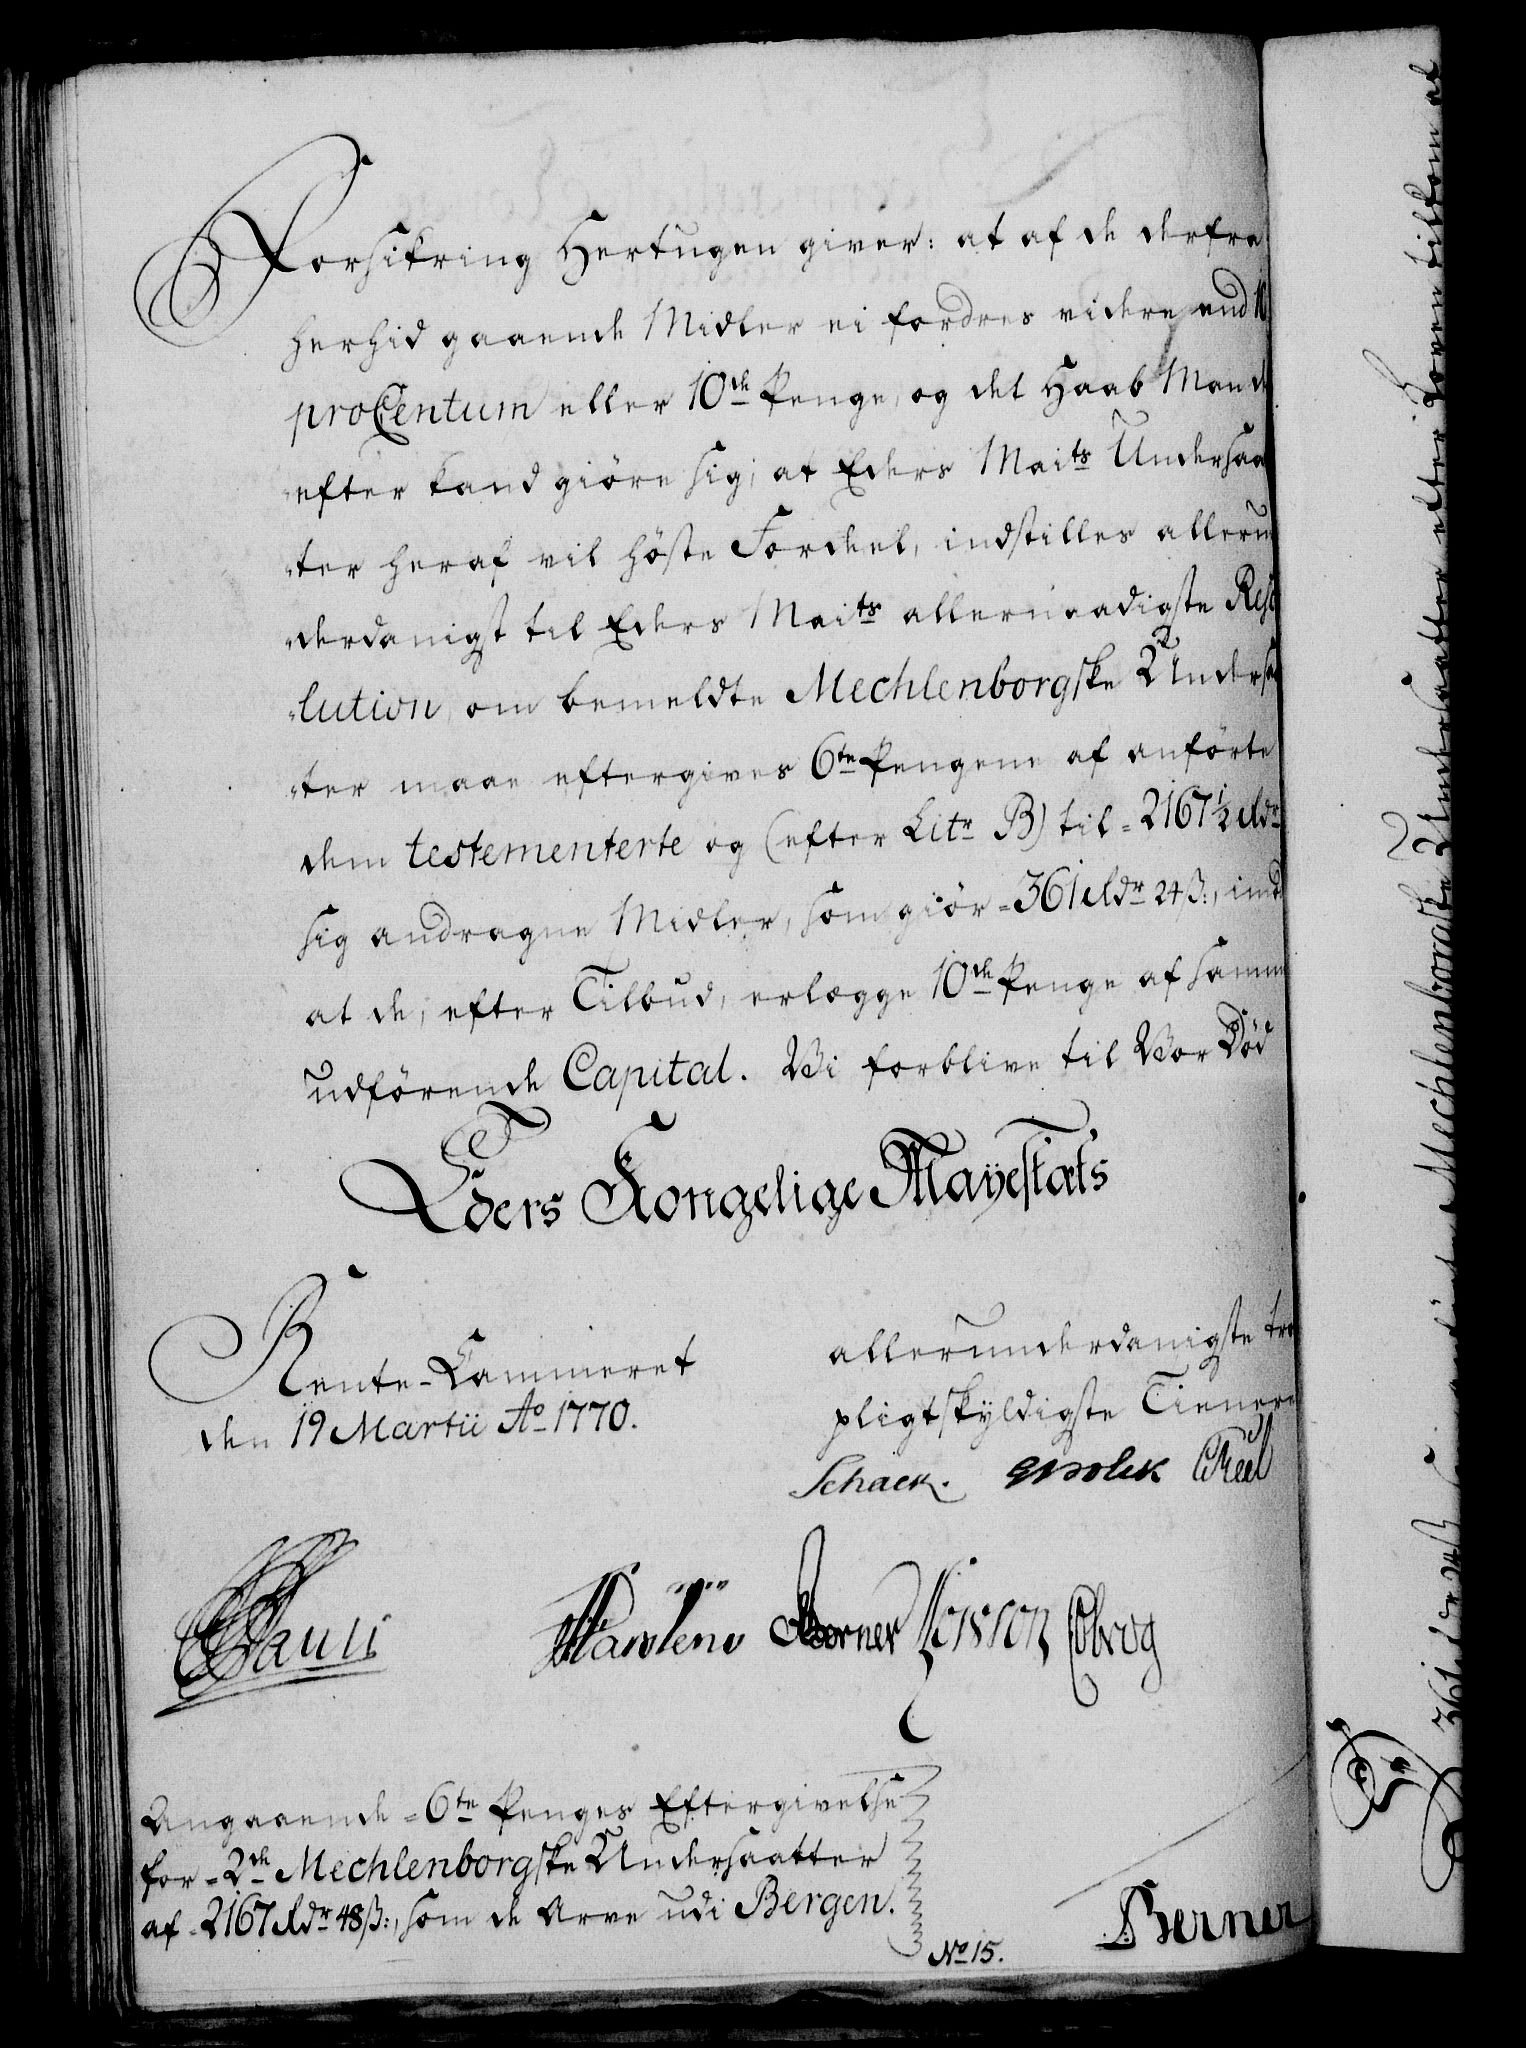 Forsikring Hertugen giver: at af de derfra
herhid gaaende Midler ei fordres videre end 10
proCentum eller 10de Penge, og det Haab Man de
efter kand giöre sig, at Eders Maits Undersaa
ter heraf vil höste Fordeel, indstilles allerun
derdanigst til Eders Maits allernaadigste Reso
lution, om bemeldte Mechlenborgske 2 Undersaa
ter maae eftergives 6te Pengene af anförte
dem testementerte og (efter Litr B) til 2167½ Rdr
sig andragne Midler, som giör 361 Rdr 24 ß:, imod
at de, efter Tilbud, erlægge 10de Penge af samme
udförende Capital. Vi forblive til Vor Död
Eders Kongelige Mayestæts
Rente-Cammeret
den 19 Martii Ao 1770.
allerunderdanigste tro
pligtskyldigste Tienere
Schack.
Pauli
Berner
Angaaende 6te Penges Eftergivelse
for 2de Mechlenborgske Undersaatter
af 2167 Rdr 48 ß:, som de Arve udi Bergen.
No 15.
Berner